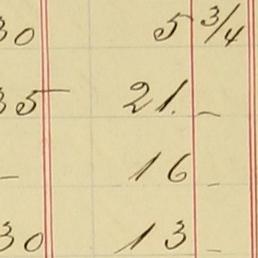 30 5 3/4
35 21. –
– 16 –
30 13 –